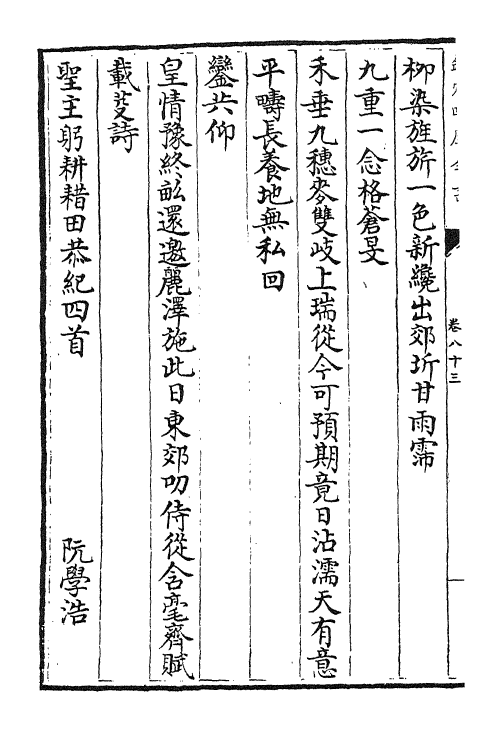 卷八十三
栁染旌旂一色新纔出郊圻甘雨霈
九重一念格蒼旻
禾垂九穗麥雙岐上瑞從今可預期竟日沾濡天有意
平疇長養地無私回
鑾共仰
皇情豫終畝還邀麗澤施此日東郊叨侍從含毫齊賦
載芟詩
聖主躬耕耤田恭紀四首　阮學浩